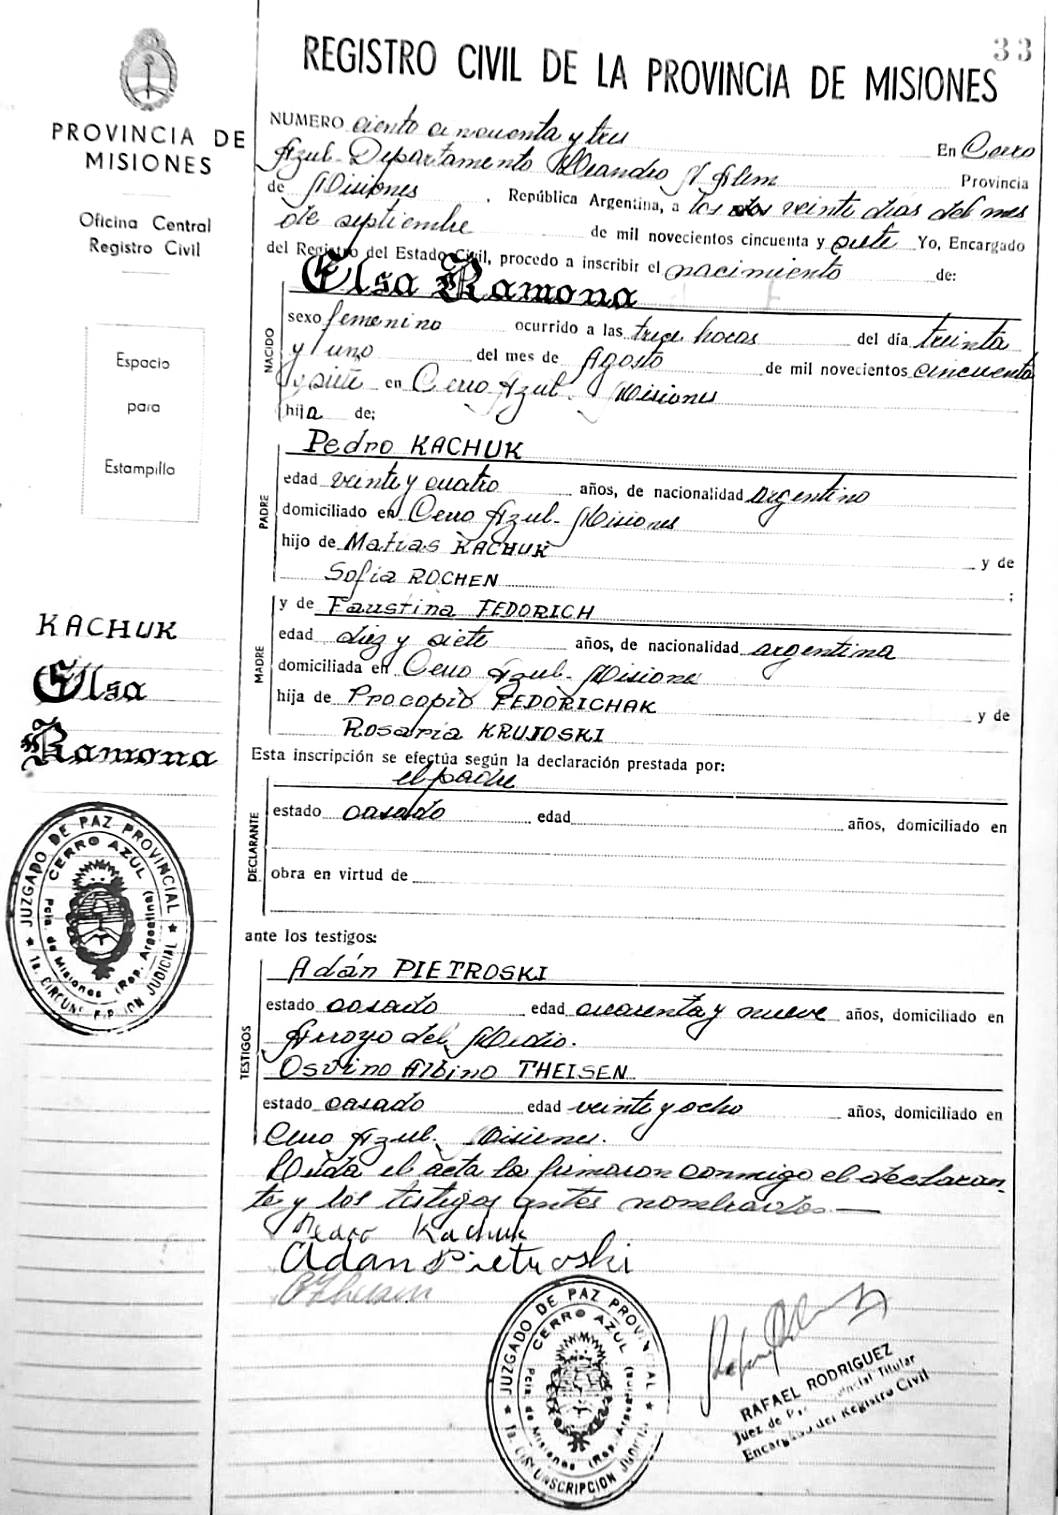 33
REGISTRO CIVIL DE LA PROVINCIA DE MISIONES
PROVINCIA DE
MISIONES
Oficina Central
Registro Civil
Espacio
para
Estampilla
KACHUK
Elsa
Ramona
JUZGADO DE PAZ PROVINCIAL
CERRO AZUL
Pcia. de Misiones (Rep. Argentina)
1a. CIRCUNSCRIPCION JUDICIAL
NUMERO ciento cincuenta y tres En Cerro
Azul - Departamento Leandro N Alem Provincia
de Misiones, República Argentina, a los veinte dias del mes
de septiembre de mil novecientos cincuenta y siete Yo, Encargado
del Registro del Estado Civil, procedo a inscribir el nacimiento de:
Elsa Ramona
NACIDO
sexo femenino ocurrido a las trece horas del día treinta
y uno del mes de Agosto de mil novecientos cincuenta
y siete en Cerro Azul - Misiones
hija de;
PADRE
Pedro KACHUK
edad veinte y cuatro años, de nacionalidad argentino
domiciliado en Cerro Azul - Misiones
hijo de Matias KACHUK y de
Sofia ROCHEN ;
MADRE
y de Faustina FEDORICH
edad diez y siete años, de nacionalidad argentina
domiciliada en Cerro Azul - Misiones
hija de Procopio FEDORICHAK y de
Rosaria KRUJOSKI
Esta inscripción se efectúa según la declaración prestada por:
DECLARANTE
el padre
estado casado edad años, domiciliado en
obra en virtud de
ante los testigos:
TESTIGOS
Adán PIETROSKI
estado casado edad cuarenta y nueve años, domiciliado en
Arroyo del Medio.
Osvino Albino THEISEN
estado casado edad veinte y ocho años, domiciliado en
Cerro Azul - Misiones.
Leida el acta la firmaron conmigo el declaran-
te y los testigos antes nombrados.—
Pedro Kachuk
Adan Pietroski
Theisen
JUZGADO DE PAZ PROVINCIAL
CERRO AZUL
Pcia. de Misiones (Rep. Argentina)
1a. CIRCUNSCRIPCION JUDICIAL
RAFAEL RODRIGUEZ
Juez de Paz Provincial Titular
Encargado del Registro Civil